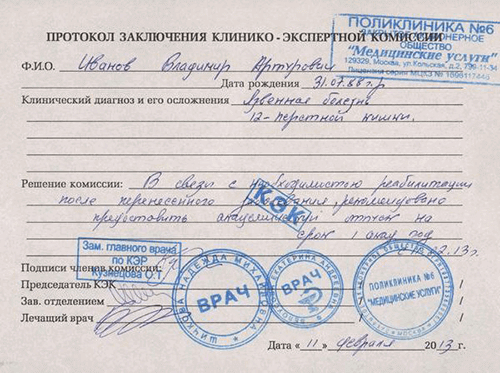 ПОЛИКЛИНИКА №6
ЗАКРЫТОЕ АКЦИОНЕРНОЕ
ОБЩЕСТВО
"Медицинские услуги"
129329, Москва, ул. Кольская, д.2,
Лицензия серии МЦКЗ №
ПРОТОКОЛ ЗАКЛЮЧЕНИЯ КЛИНИКО - ЭКСПЕРТНОЙ КОМИССИИ
Ф.И.О. Иванов Владимир Артурович
Дата рождения 31.07.88 г.р
Клинический диагноз и его осложнения Язвенная болезнь
12-перстной кишки.
Решение комиссии: В связи с необходимостью реабилитации
после перенесенного заболевания, рекомендовано
предоставить академический отпуск на
срок 1 год
КЭК
Зам. главного врача
по КЭР
Кузнецова О.Т.
Подписи членов комиссии:
Председатель КЭК
Зав. отделением
Лечащий врач
НАДЕЖДА МИХАЙЛОВНА
ВРАЧ
ЕКАТЕРИНА АНДРЕЕВНА
ВРАЧ
ПОЛИКЛИНИКА №6
"МЕДИЦИНСКИЕ УСЛУГИ"
МОСКВА
Дата «11» февраля 2013 г.